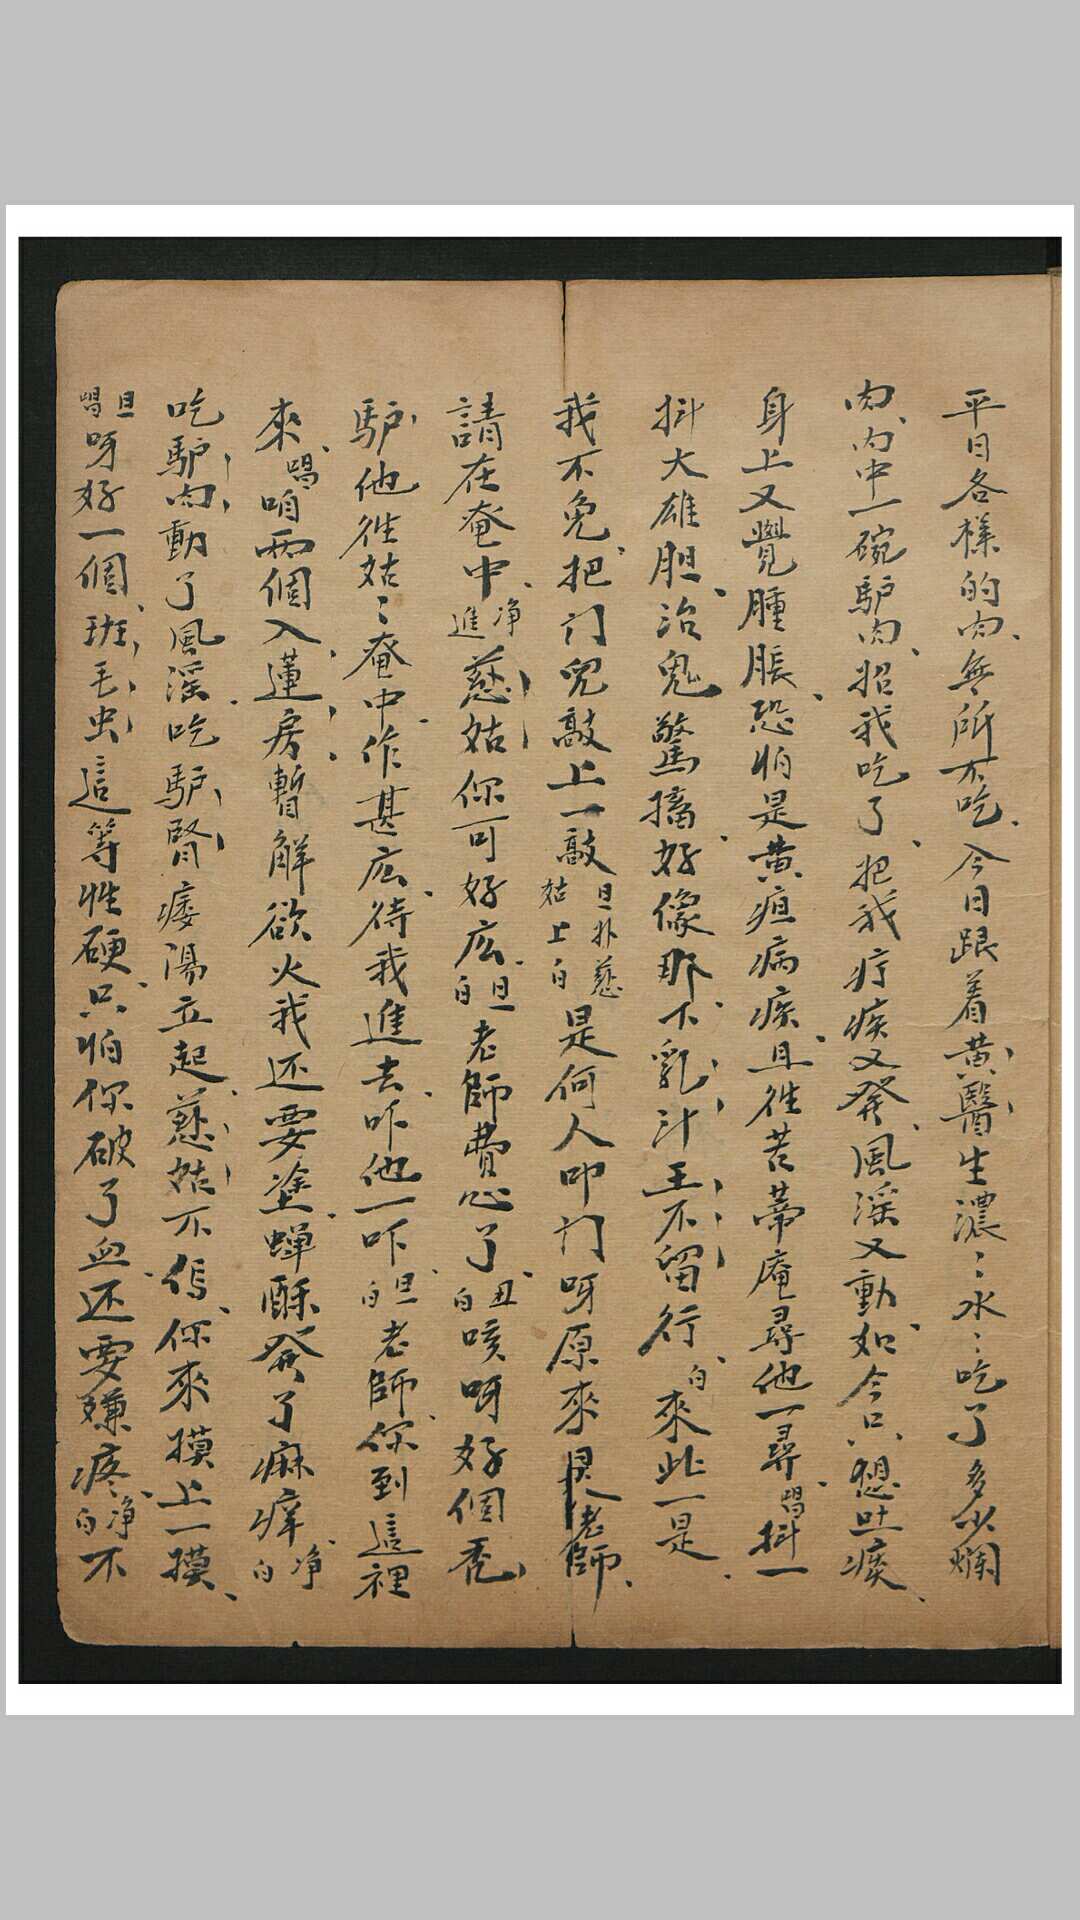 平日各樣的肉無所不吃今日跟着黄醫生濃〻水〻吃了多少爛
肉内中一碗馿肉招我吃了把我疔疾又發風淫又動如今只想吐痰
身上又覺腫脹恐怕是黄疸病疾且徃苦蒂庵尋他一尋唱抖一
抖大雄胆治鬼驚搐好像那不乳汁王不留行白來此一是
我不免把门兒敲上一敲旦扑慈姑上白是何人叩门呀原來是老師
請在奄中净進慈姑你可好庅旦白老師費心了丑白咳呀好個秃
馿他徃姑〻奄中作甚庅待我進去咋他一咋旦白老師你到這裡
來唱咱两個入蓮房暫解欲火我还要塗蟬酥發了麻痒净白
吃馿肉動了風淫吃馿腎痿陽立起慈姑不信你來摸上一摸
旦唱呀好一個班毛虫這等性硬只怕你破了血还要嫌疼净白不